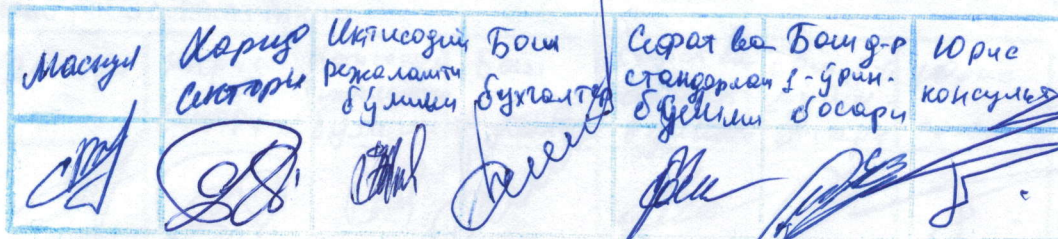 Масъул
Харид
сектори
Иқтисодий
режалашти
бўлими
Бош
бухгалтер
Сифат ва
стандартлаш
бўлими
Бош д-р
1-ўрин-
босари
Юрис
консульт